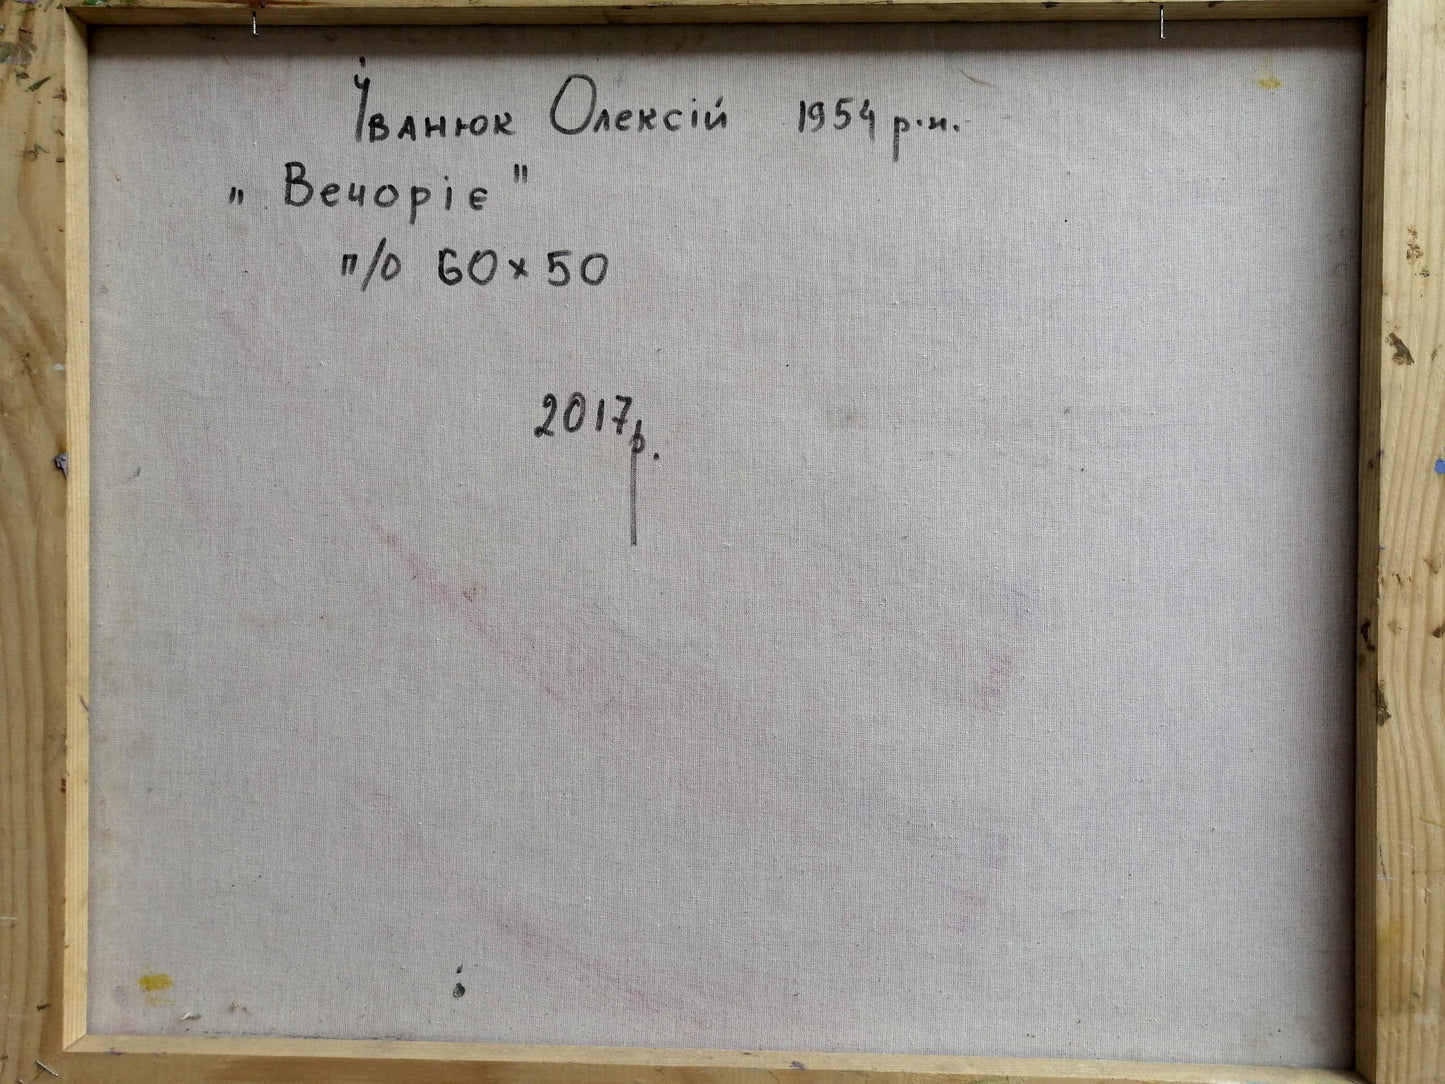 Іванюк Олексій 1954 р.н.
„Вечоріє"
п/о 60×50
2017р.